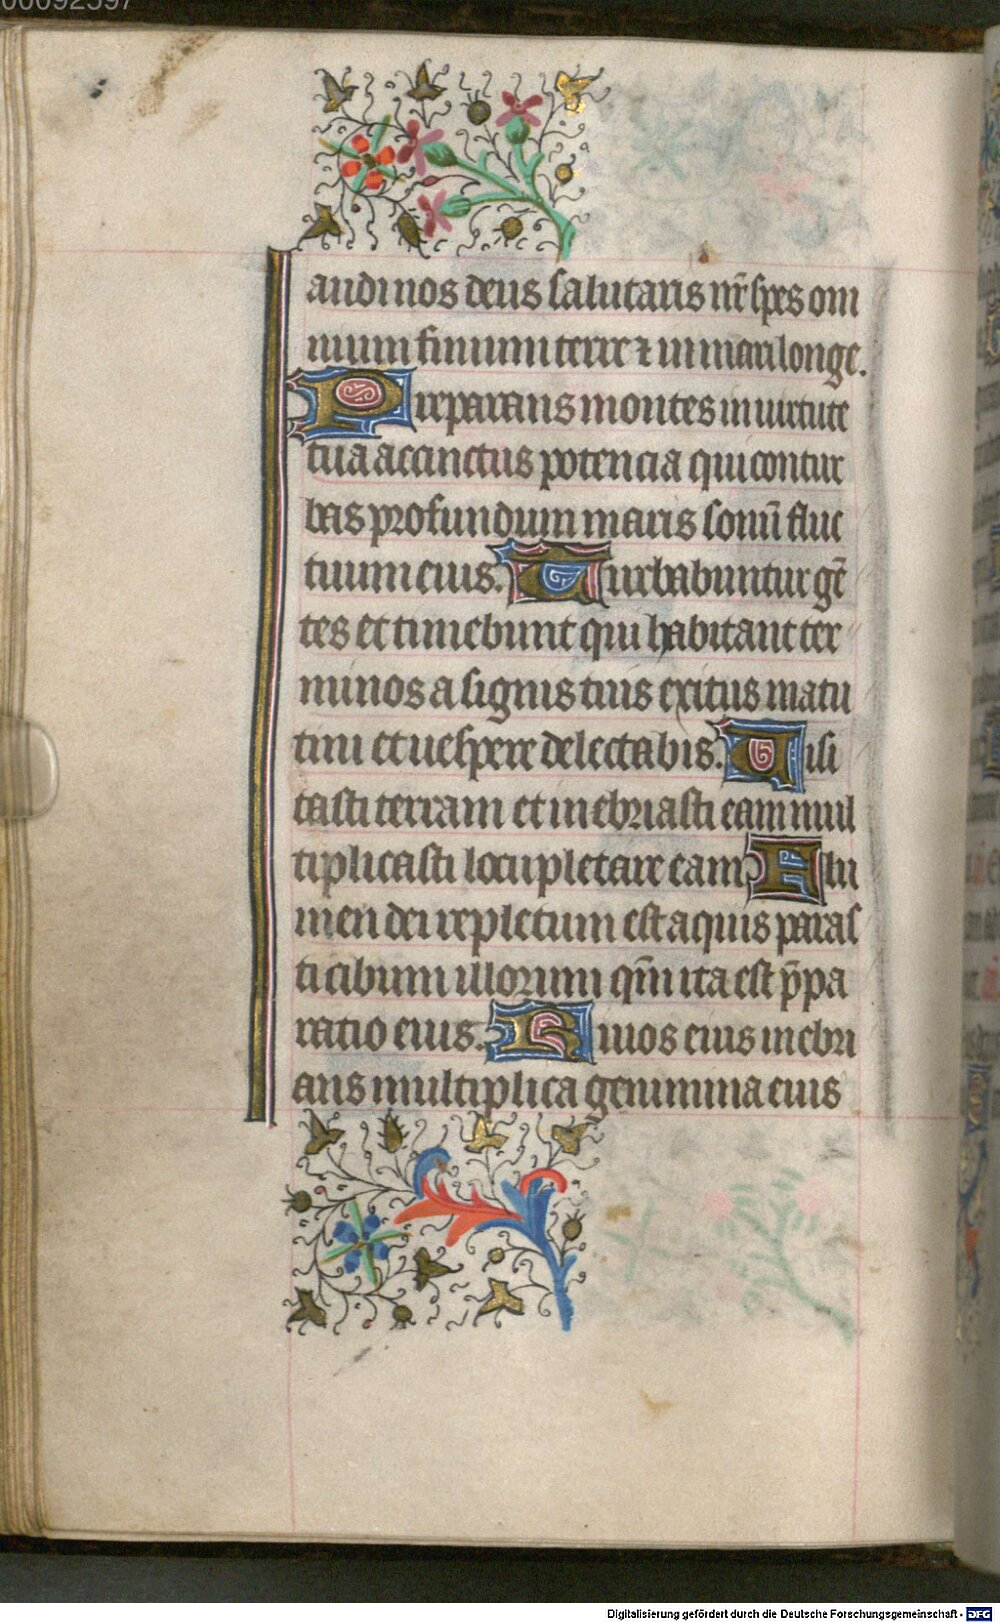 00092397
audi nos deus salutaris nr̄ spes om
nium finium terre ⁊ in mari longe.
Preparans montes in uirtute
tua accinctus potencia qui contur
bas profundum maris sonū fluc
tuum eius. Turbabuntur gē
tes et timebunt qui habitant ter
minos a signis tuis exitus matu
tini et uespere delectabis. Uisi
tasti terram et inebriasti eam mul
tiplicasti locupletare eam Flu
men dei repletum est aquis paras
ti cibum illorum qm̄ ita est p̄pa
ratio eius. Riuos eius inebri
ans multiplica genimina eius
Digitalisierung gefördert durch die Deutsche Forschungsgemeinschaft - DFG